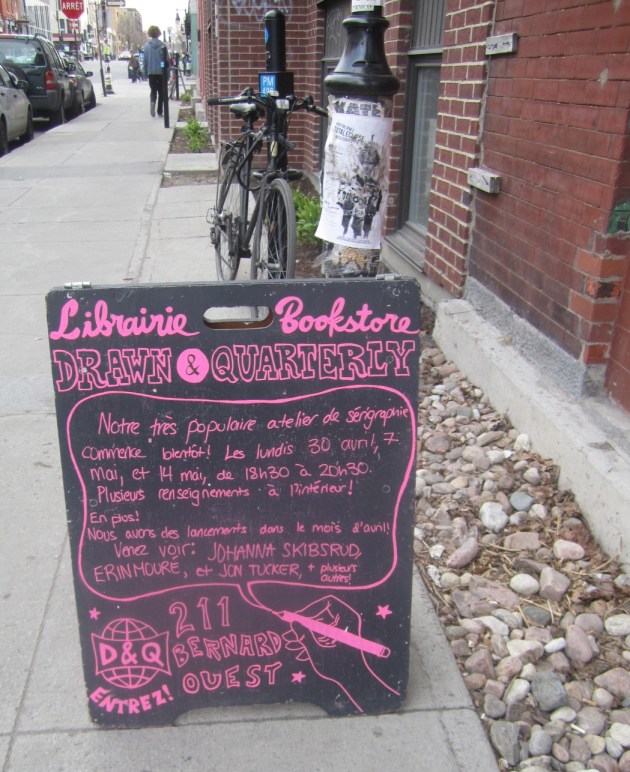 ARRÊT
PM
KATE
Librairie Bookstore
DRAWN & QUARTERLY
Notre très populaire atelier de sérigraphie
commence bientôt! Les lundis 30 avril, 7
mai, et 14 mai, de 18h30 à 20h30.
Plusieurs renseignements à l'intérieur!
En plus!
Nous avons des lancements dans le mois d'avril!
Venez voir: JOHANNA SKIBSRUD,
ERIN MOURE, et JON TUCKER, + plusieurs
autres!
211
BERNARD
OUEST
D&Q
ENTREZ!